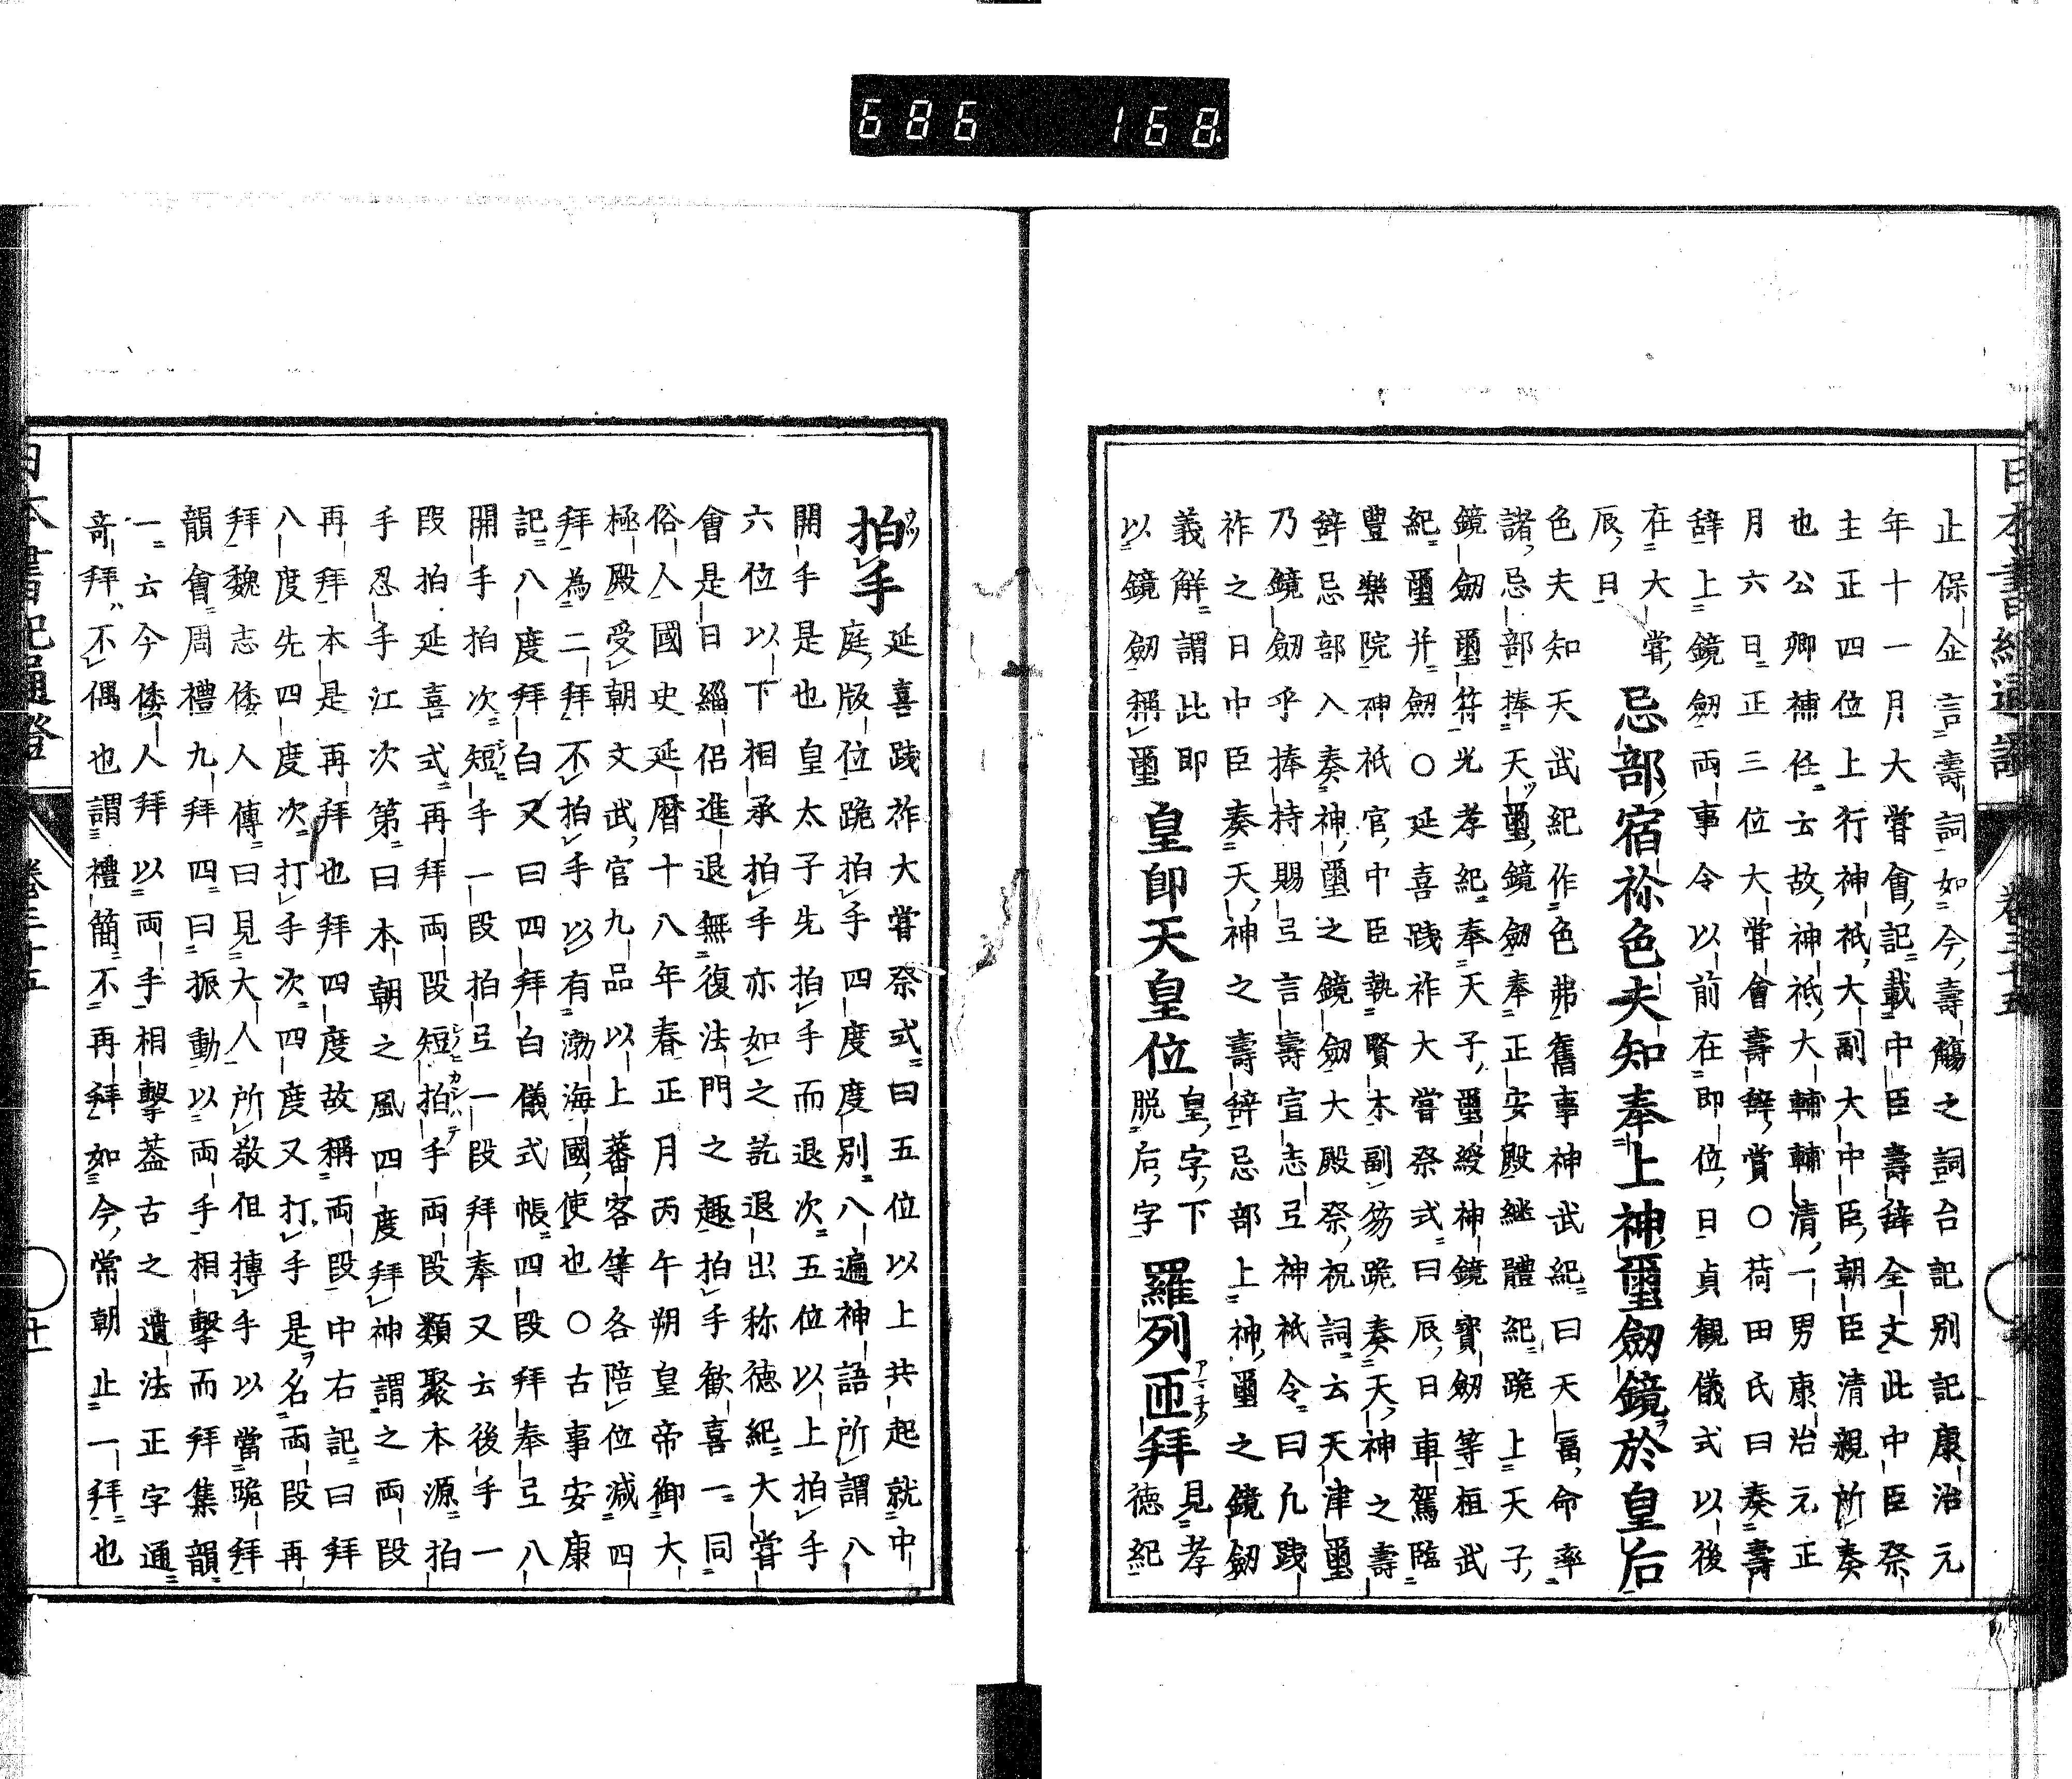 686 168.
日本書紀通證 卷三十五
止保企言壽詞如今壽觴之詞台記別記康治元
年十一月大嘗會記載中臣壽辞全文此中臣祭
主正四位上行神祇大副大中臣朝臣清親所奏
也公卿補任云故神祇大輔輔清一男康治元正
月六日正三位大嘗會壽辞賞○荷田氏曰奏壽
辞上鏡劔両事令以前在即位日貞観儀式以後
在大嘗
辰日
忌部宿祢色夫知奉上神璽劔鏡於皇后
色夫知天武紀作色弗舊事神武紀曰天冨命率
諸忌部捧天璽鏡劔奉正安殿継體紀跪上天子
鏡劔璽符光孝紀奉天子璽綬神鏡寳劔等桓武
紀璽并劔○延喜践祚大嘗祭式曰辰日車駕臨
豐樂院神祇官中臣執賢木副笏跪奏天神之壽
辞忌部入奏神璽之鏡劔大殿祭祝詞云天津璽
乃鏡劔乎捧持賜弖言壽宣志弖神祇令曰凡践
祚之日中臣奏天神之壽辞忌部上神璽之鏡劔
義解謂此即
以鏡劔称璽
皇即天皇位
皇字下
脱后字
羅列匝拜
見孝
徳紀
拍手
延喜践祚大嘗祭式曰五位以上共起就中
庭版位跪拍手四度度別八遍神語所謂八
開手是也皇太子先拍手而退次五位以上拍手
六位以下相承拍手亦如之訖退出称徳紀大嘗
會是日緇侶進退無復法門之趣拍手歓喜一同
俗人國史延暦十八年春正月丙午朔皇帝御大
極殿受朝文武官九品以上蕃客等各陪位減四
拜為二拜不拍手以有渤海國使也○古事安康
記八度拜白又曰四拜白儀式帳四段拜奉弖八
開手拍次短手一段拍弖一段拜奉又云後手一
段拍延喜式再拜両段短拍手両段類聚本源拍
手忍手江次第曰本朝之風四度拜神謂之両段
再拜本是再拜也拜四度故稱両段中右記曰拜
八度先四度次打手次四度又打手是名両段再
拜魏志倭人傳曰見大人所敬但搏手以當跪拜
韻會周禮九拜四曰振動以両手相擊而拜集韻
一云今倭人拜以両手相擊葢古之遺法正字通
竒拜不偶也謂禮簡不再拜如今常朝止一拜也
日本書紀通證 卷三十五 十一